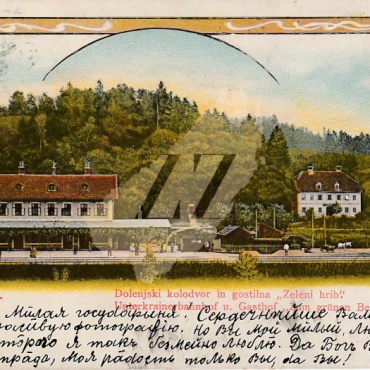 Dolenjski kolodvor in gostilna „Zeleni hrib“.
Unterkrainerbahnhof u. Gasthof „Zum grünen Be
Милая государыня. Сердечнейше Вам
фотографію. Но Вы Мой милый, Лю
я такъ Люблю. Да Богъ
Моя радость только Вы, да Вы!